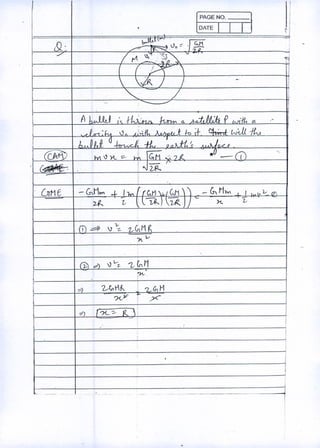 PAGE NO.
DATE
Q.
bullet(m)
V₀ = √(GM/2R)
M
2R
R
A bullet is thrown from a satellite P with a
velocity V₀ with respect to it. will the
bullet touch the earth's surface.
(CAM) m v x = m √(GM/2R) × 2R — ①
COME - GMm/2R + 1/2 m (√(GM/2R))(√(GM/2R)) = - GMm/x + 1/2 mv² ②
① ⇒ v² = 2GMR/x²
② ⇒ v² = 2GM/x
⇒ 2GMR/x² = 2GM/x
⇒ x = R